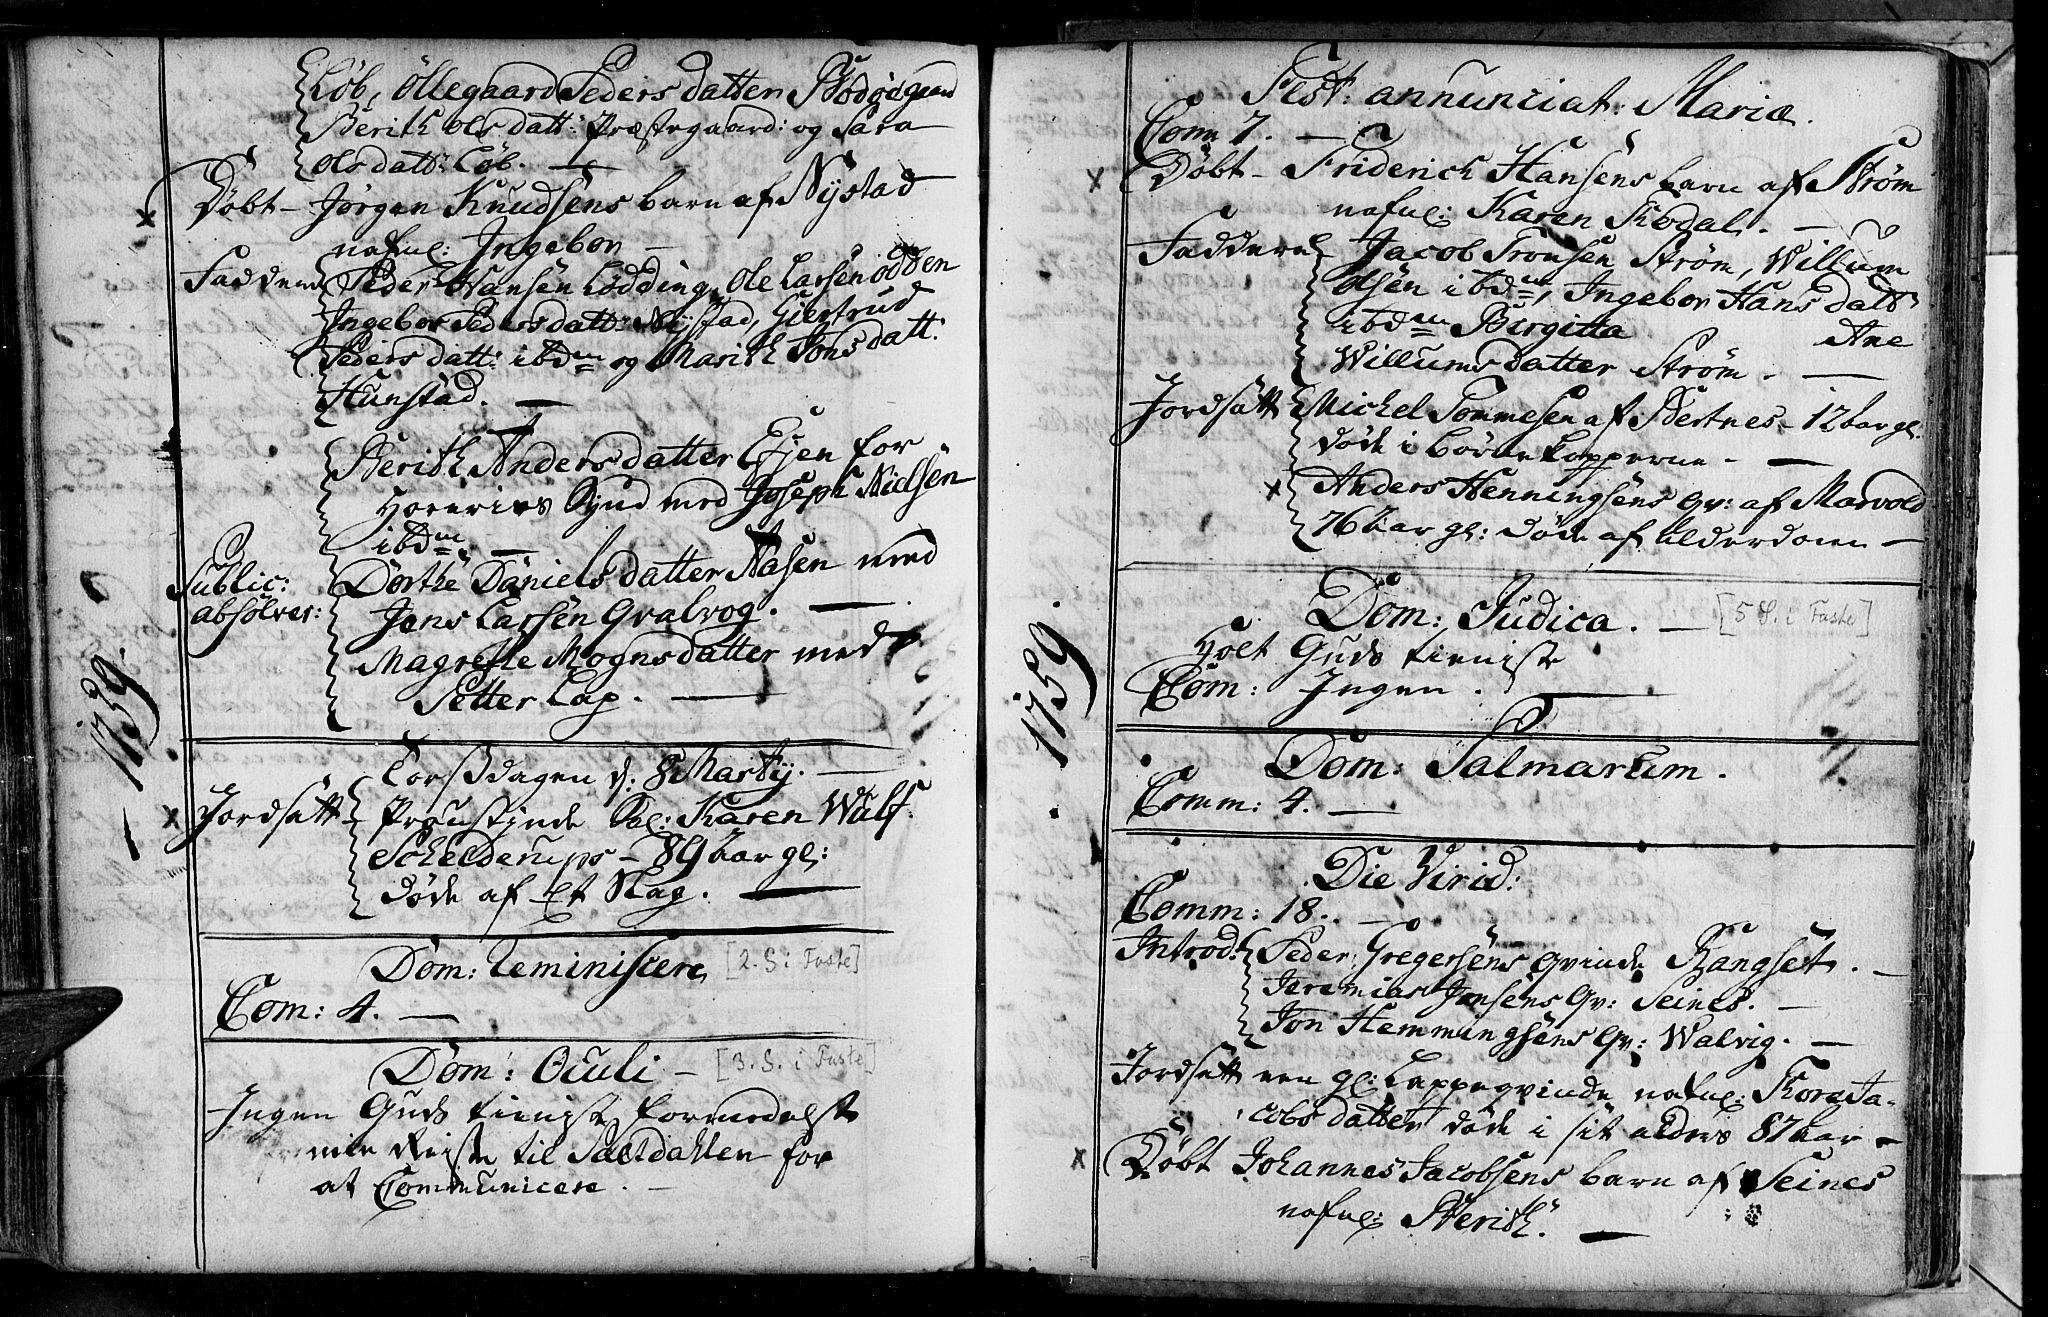 Løb, Ollegaard Peders datter Bodøegaard
Berith Ols datt: Præstegaard: og Sara
Ols datt: Løb. —
Döbt — Jörgen Knudsens barn af Nystad
nafnl: Ingebor —
Faddere Peder Hansen Lödding, Ole Larsen Odden
Ingebor Peders datt: Nystad, Giertrud
Peders datt: ibdm og Marith Jons datt:
Hunstad. —
Berith Anders datter Ejen for
Horeries Synd med Joseph Nielsen
ibdm. —
Public:
absolver:
Dorthe Daniels datter Nasen med
Jens Larsen Qvalvog. —
Magrethe Mogns datter med
Petter Lap. —
— 1759.
Torsdagen d: 8 Marty. —
Jordsatt — Proustinde Sal: Karen Wulf
Schelderups — 89 aar gl:
døde af Et Slag. —
Dom: Reminiscere [2. S. i Faste]
Com: 4. —
Dom: Oculi — [3. S. i Faste]
Ingen Guds tieniste formedelst
min Reise til Saltdahlen for
at Communicere. —
Fest: annunciat: Mariæ.
Com 7. —
Döbt — Friderich Hansens barn af Ström
nafnl: Karen Kodal. —
Faddere — Jacob Tronsen Ström, Willum
Olsen ibdm, Ingebor Hans datt:
ibdm Birgitta Ane
Willums datter Ström. —
Jordsatt Michel Tommesen af Bertnes — 12 aar gl.
døde i Börnekopperne — —
Anders Henningsens qv: af Marvold
76 aar gl: døde af alderdom —
Dom: Judica. — [5 S. i Faste]
Holt Guds tieniste
Com: Ingen. —
1759.
Dom: Palmarum.
Comm: 4. —
Die Virid:
Comm: 18. —
Introd: Peder Gregersens qvinde Bangset. —
Jeremias Jensens qv: Seines. —
Jon Hemmingsens qv: Walvig. —
Jordsatt een gl: Lappeqvinde nafnl: Kora Ja-
cobs datter døde i sit alders 87 aar —
Döbt Johannes Jacobsens barn af Seines
nafnl: Berith. —